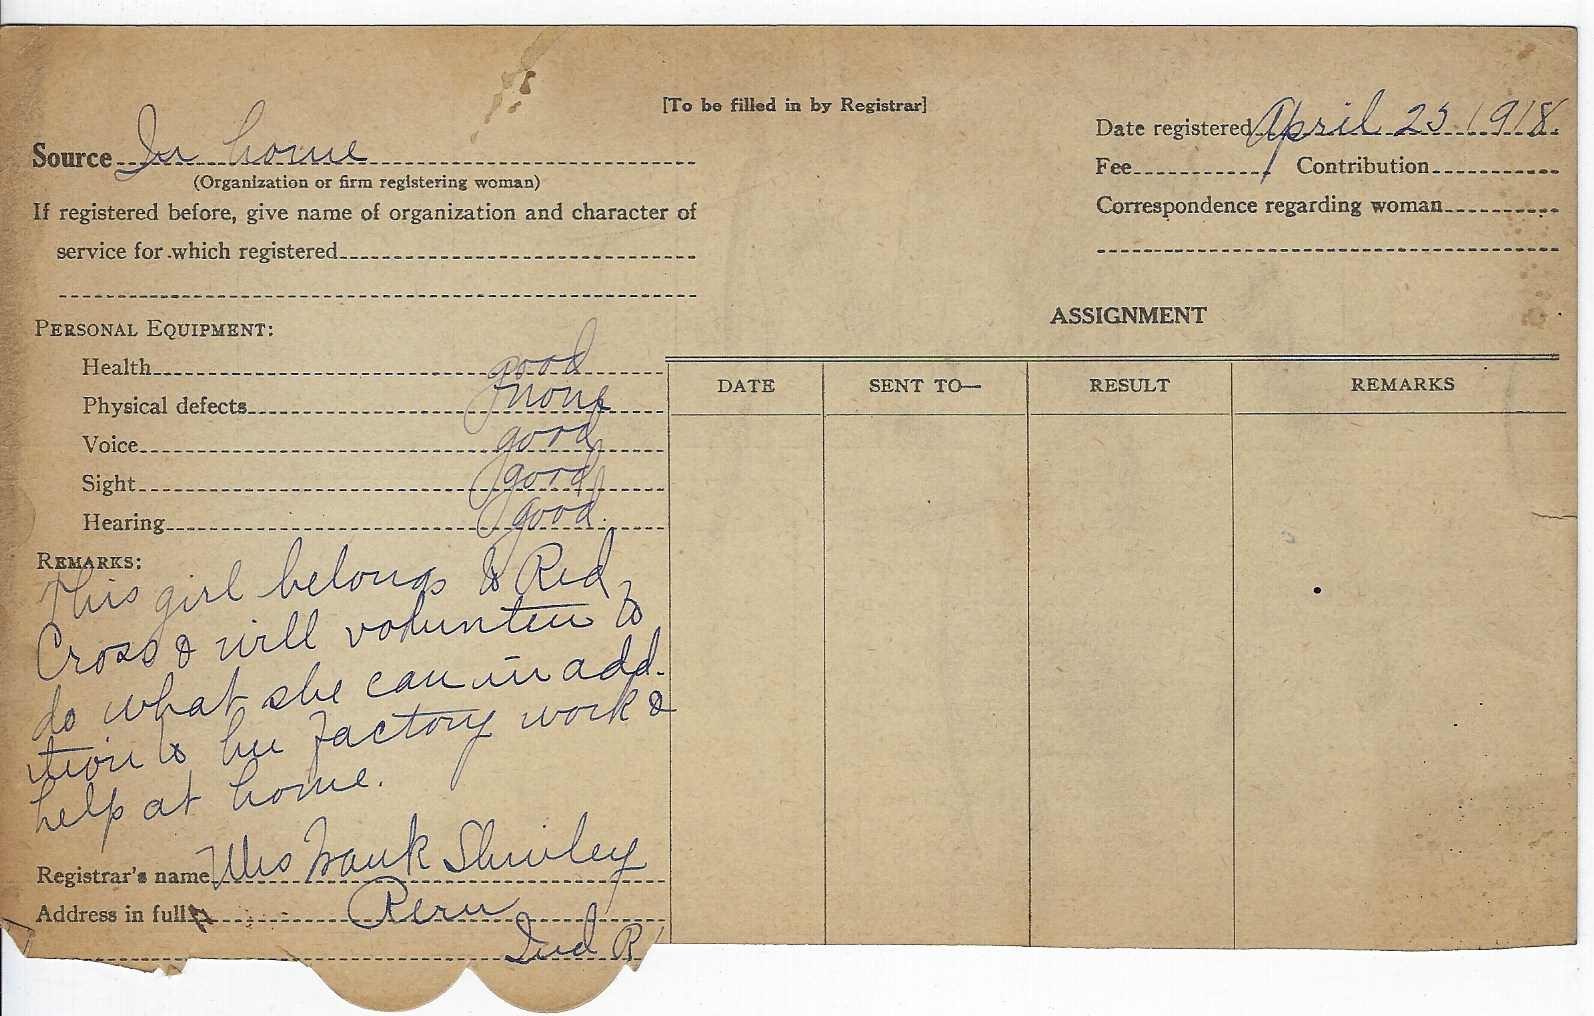 [To be filled in by Registrar]
Source In home
(Organization or firm registering woman)
If registered before, give name of organization and character of
service for which registered
Date registered April 25 1918.
Fee Contribution
Correspondence regarding woman
PERSONAL EQUIPMENT:
Health good
Physical defects none
Voice good
Sight good
Hearing good.
REMARKS:
This girl belongs to Red
Cross & will volunteer to
do what she can in add-
ition to her factory work &
help at home.
Registrar's name Mrs Frank Shirley
Address in full Peru
Ind R
ASSIGNMENT
DATE SENT TO— RESULT REMARKS